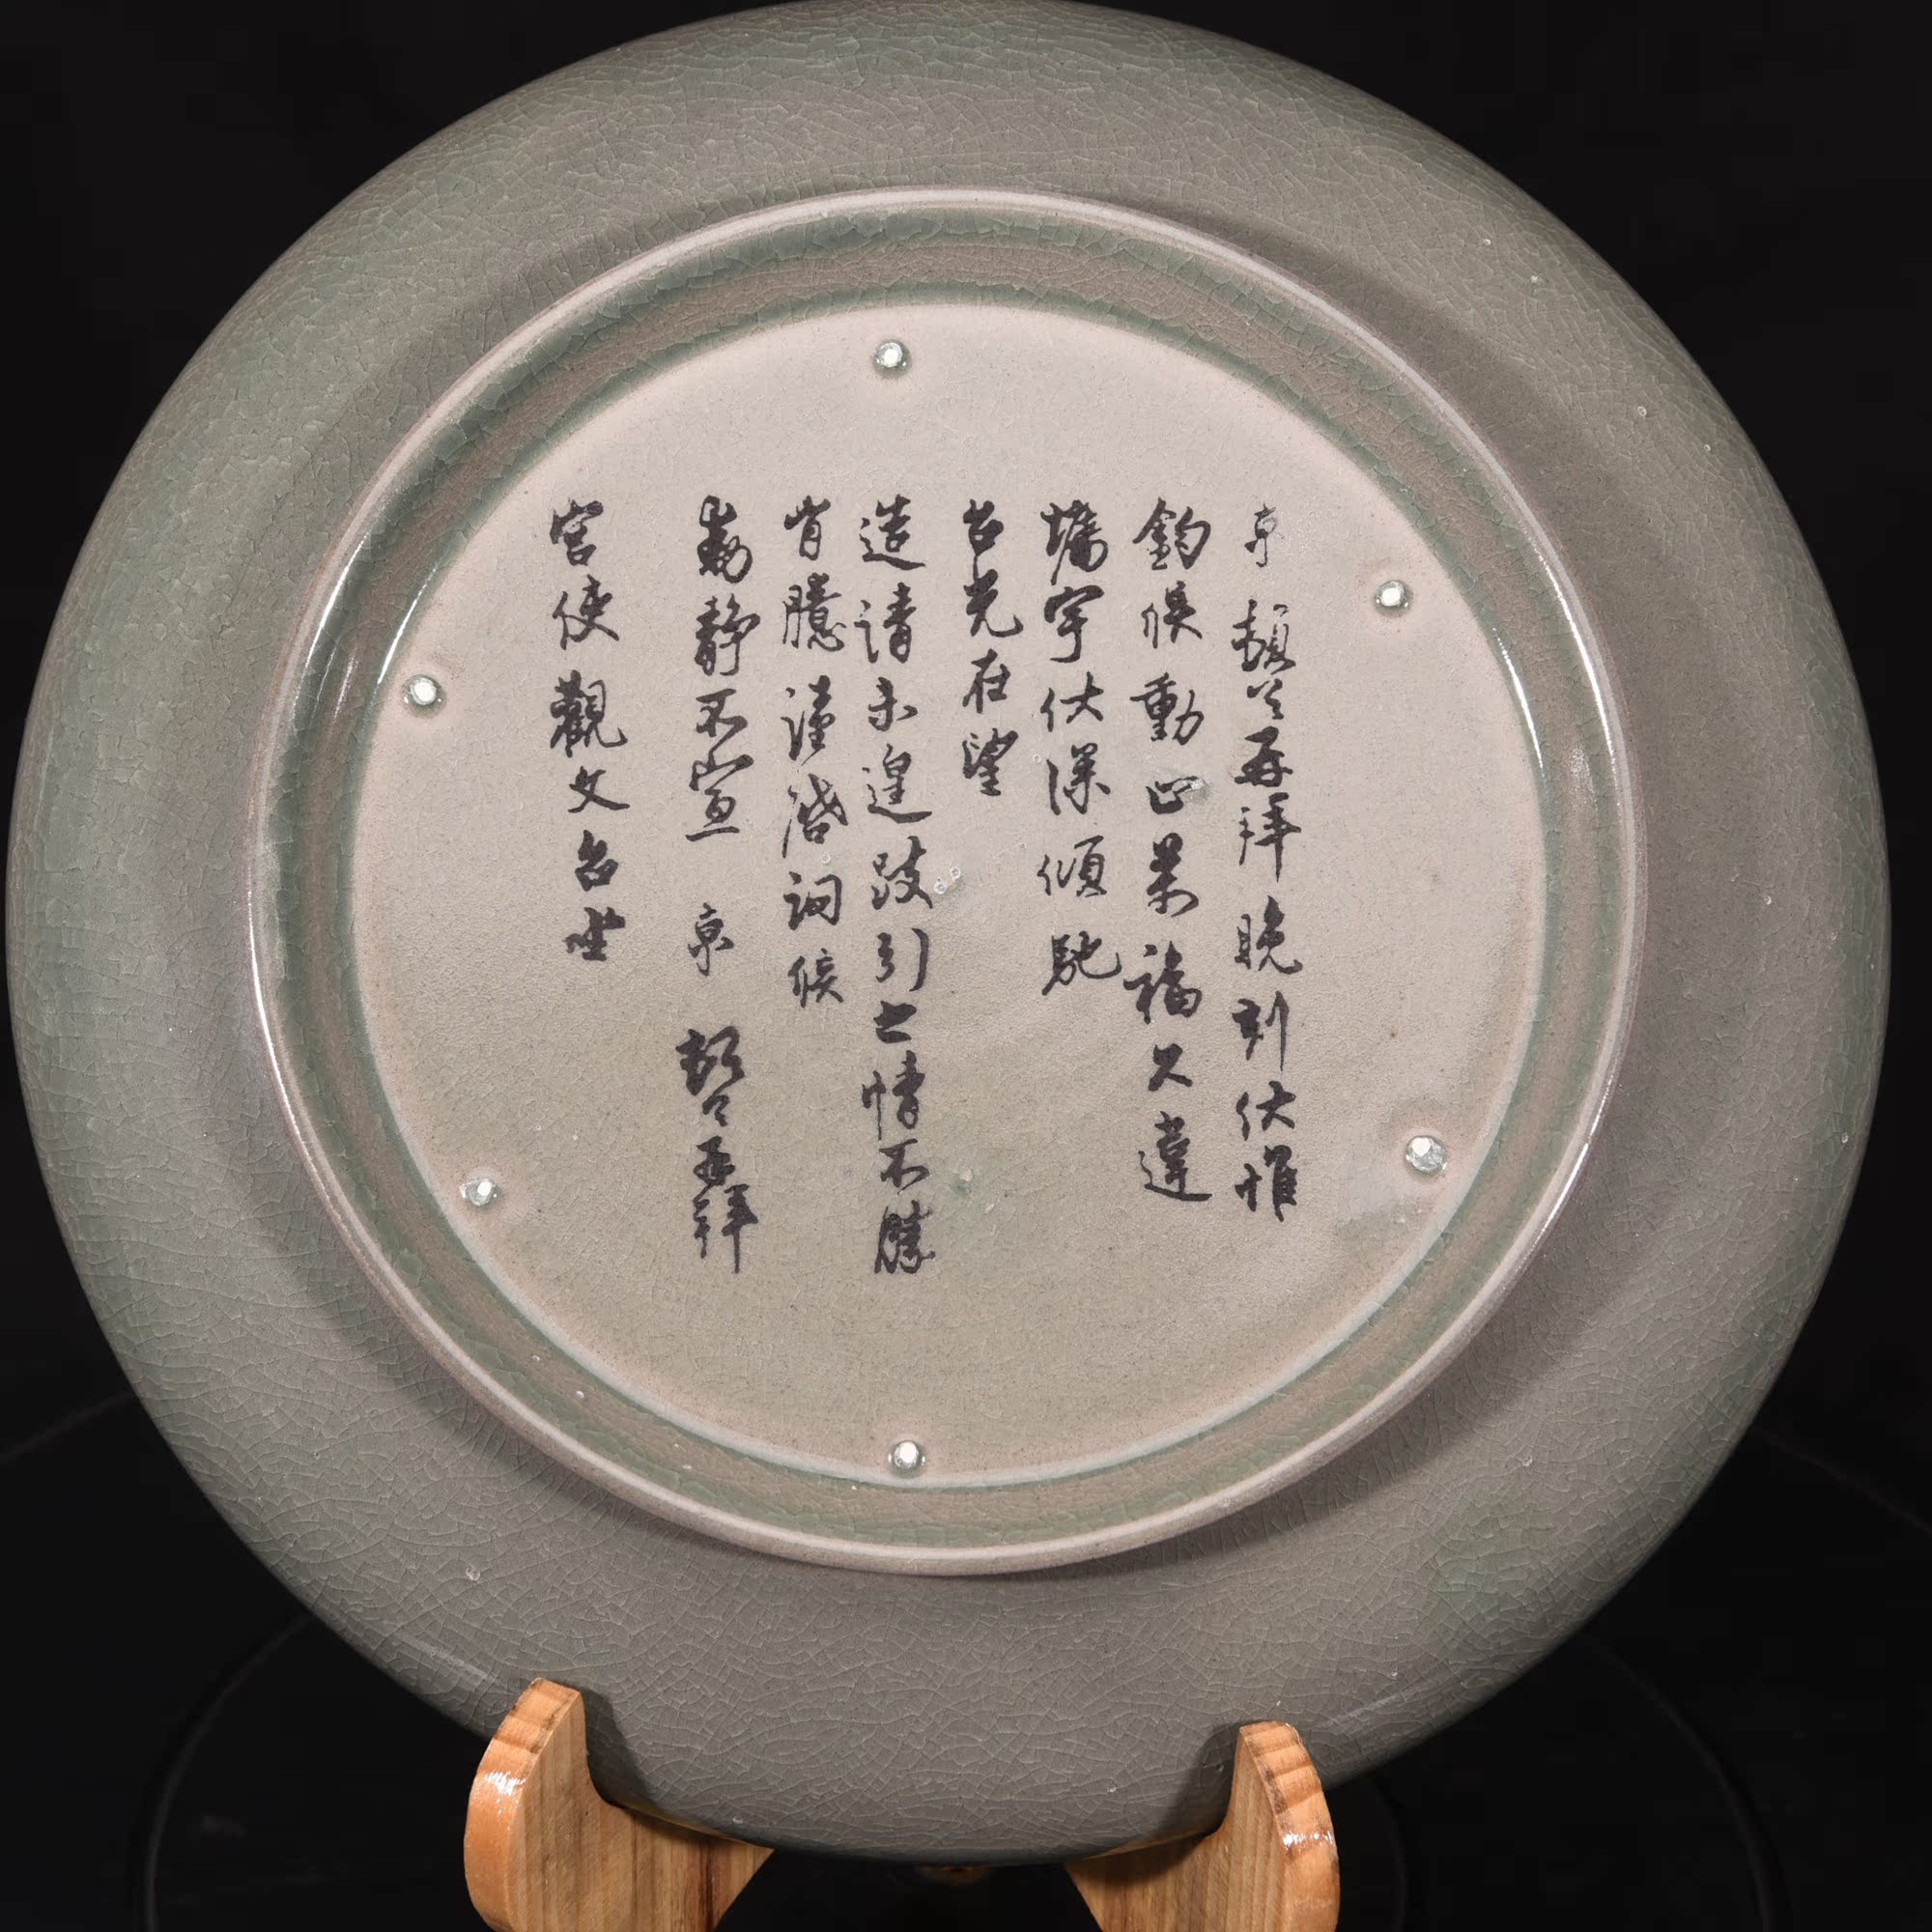 京 頓首再拜晚刻伏惟
鈞候動止萬福久違
墉宇伏深傾馳
台光在望
造請未遑跂引之情不勝
肯臆謹啓詞候
動靜不宣 京 頓首再拜
宮使觀文台坐